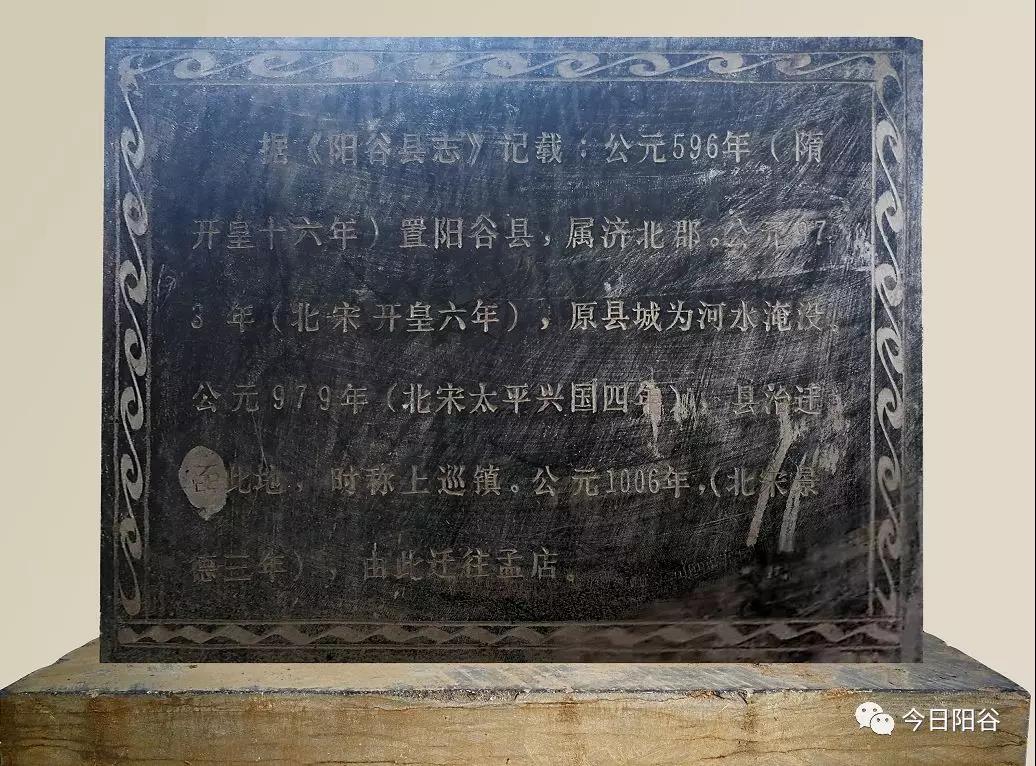 据《阳谷县志》记载：公元596年（隋
开皇十六年）置阳谷县，属济北郡。公元97
3年（北宋开皇六年），原县城为河水淹没。
公元979年（北宋太平兴国四年），县治迁
此地，时称上巡镇。公元1006年，（北宋景
德三年），由此迁往孟店。
今日阳谷